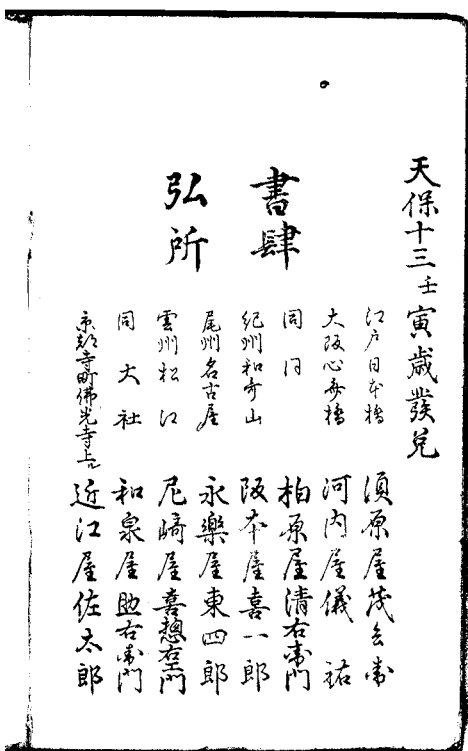 天保十三壬寅歳發兌
書肆
弘所
江戸日本橋 須原屋茂兵衛
大阪心斎橋 河内屋儀祐
同所 柏原屋清右衛門
紀州和哥山 阪本屋喜一郎
尾州名古屋 永樂屋東四郎
雲州松江 尼﨑屋喜惣右衛門
同大社 和泉屋助右衛門
京都寺町佛光寺上ル 近江屋佐太郎